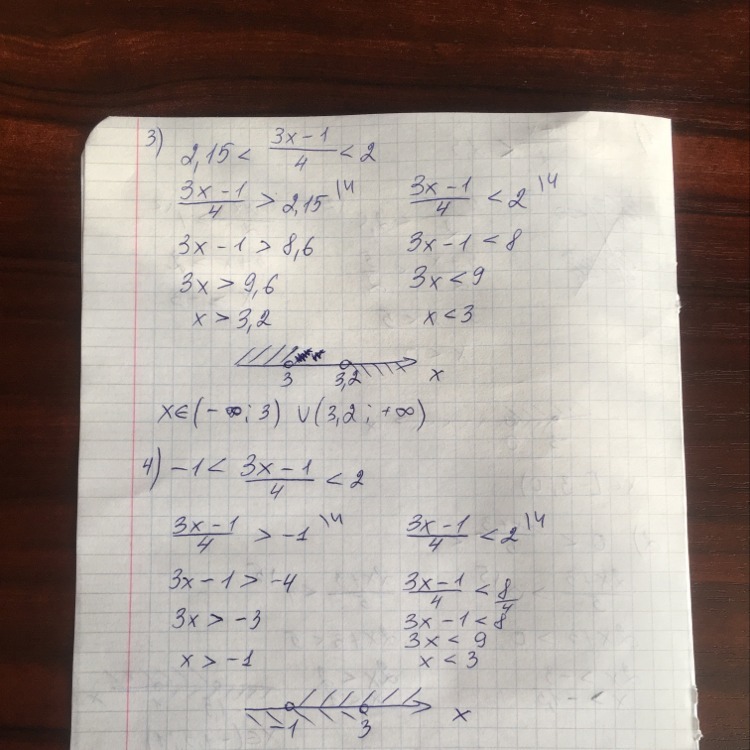 3) 2,15 < (3x-1)/4 < 2
(3x-1)/4 > 2,15 \4 (3x-1)/4 < 2 \4
3x-1 > 8,6 3x-1 < 8
3x > 9,6 3x < 9
x > 3,2 x < 3
3 3,2 x
x∈(-∞; 3) ∪ (3,2; +∞)
4) -1 < (3x-1)/4 < 2
(3x-1)/4 > -1 \4 (3x-1)/4 < 2 \4
3x-1 > -4 (3x-1)/4 < 8/4
3x > -3 3x-1 < 8
3x < 9
x > -1 x < 3
-1 3 x